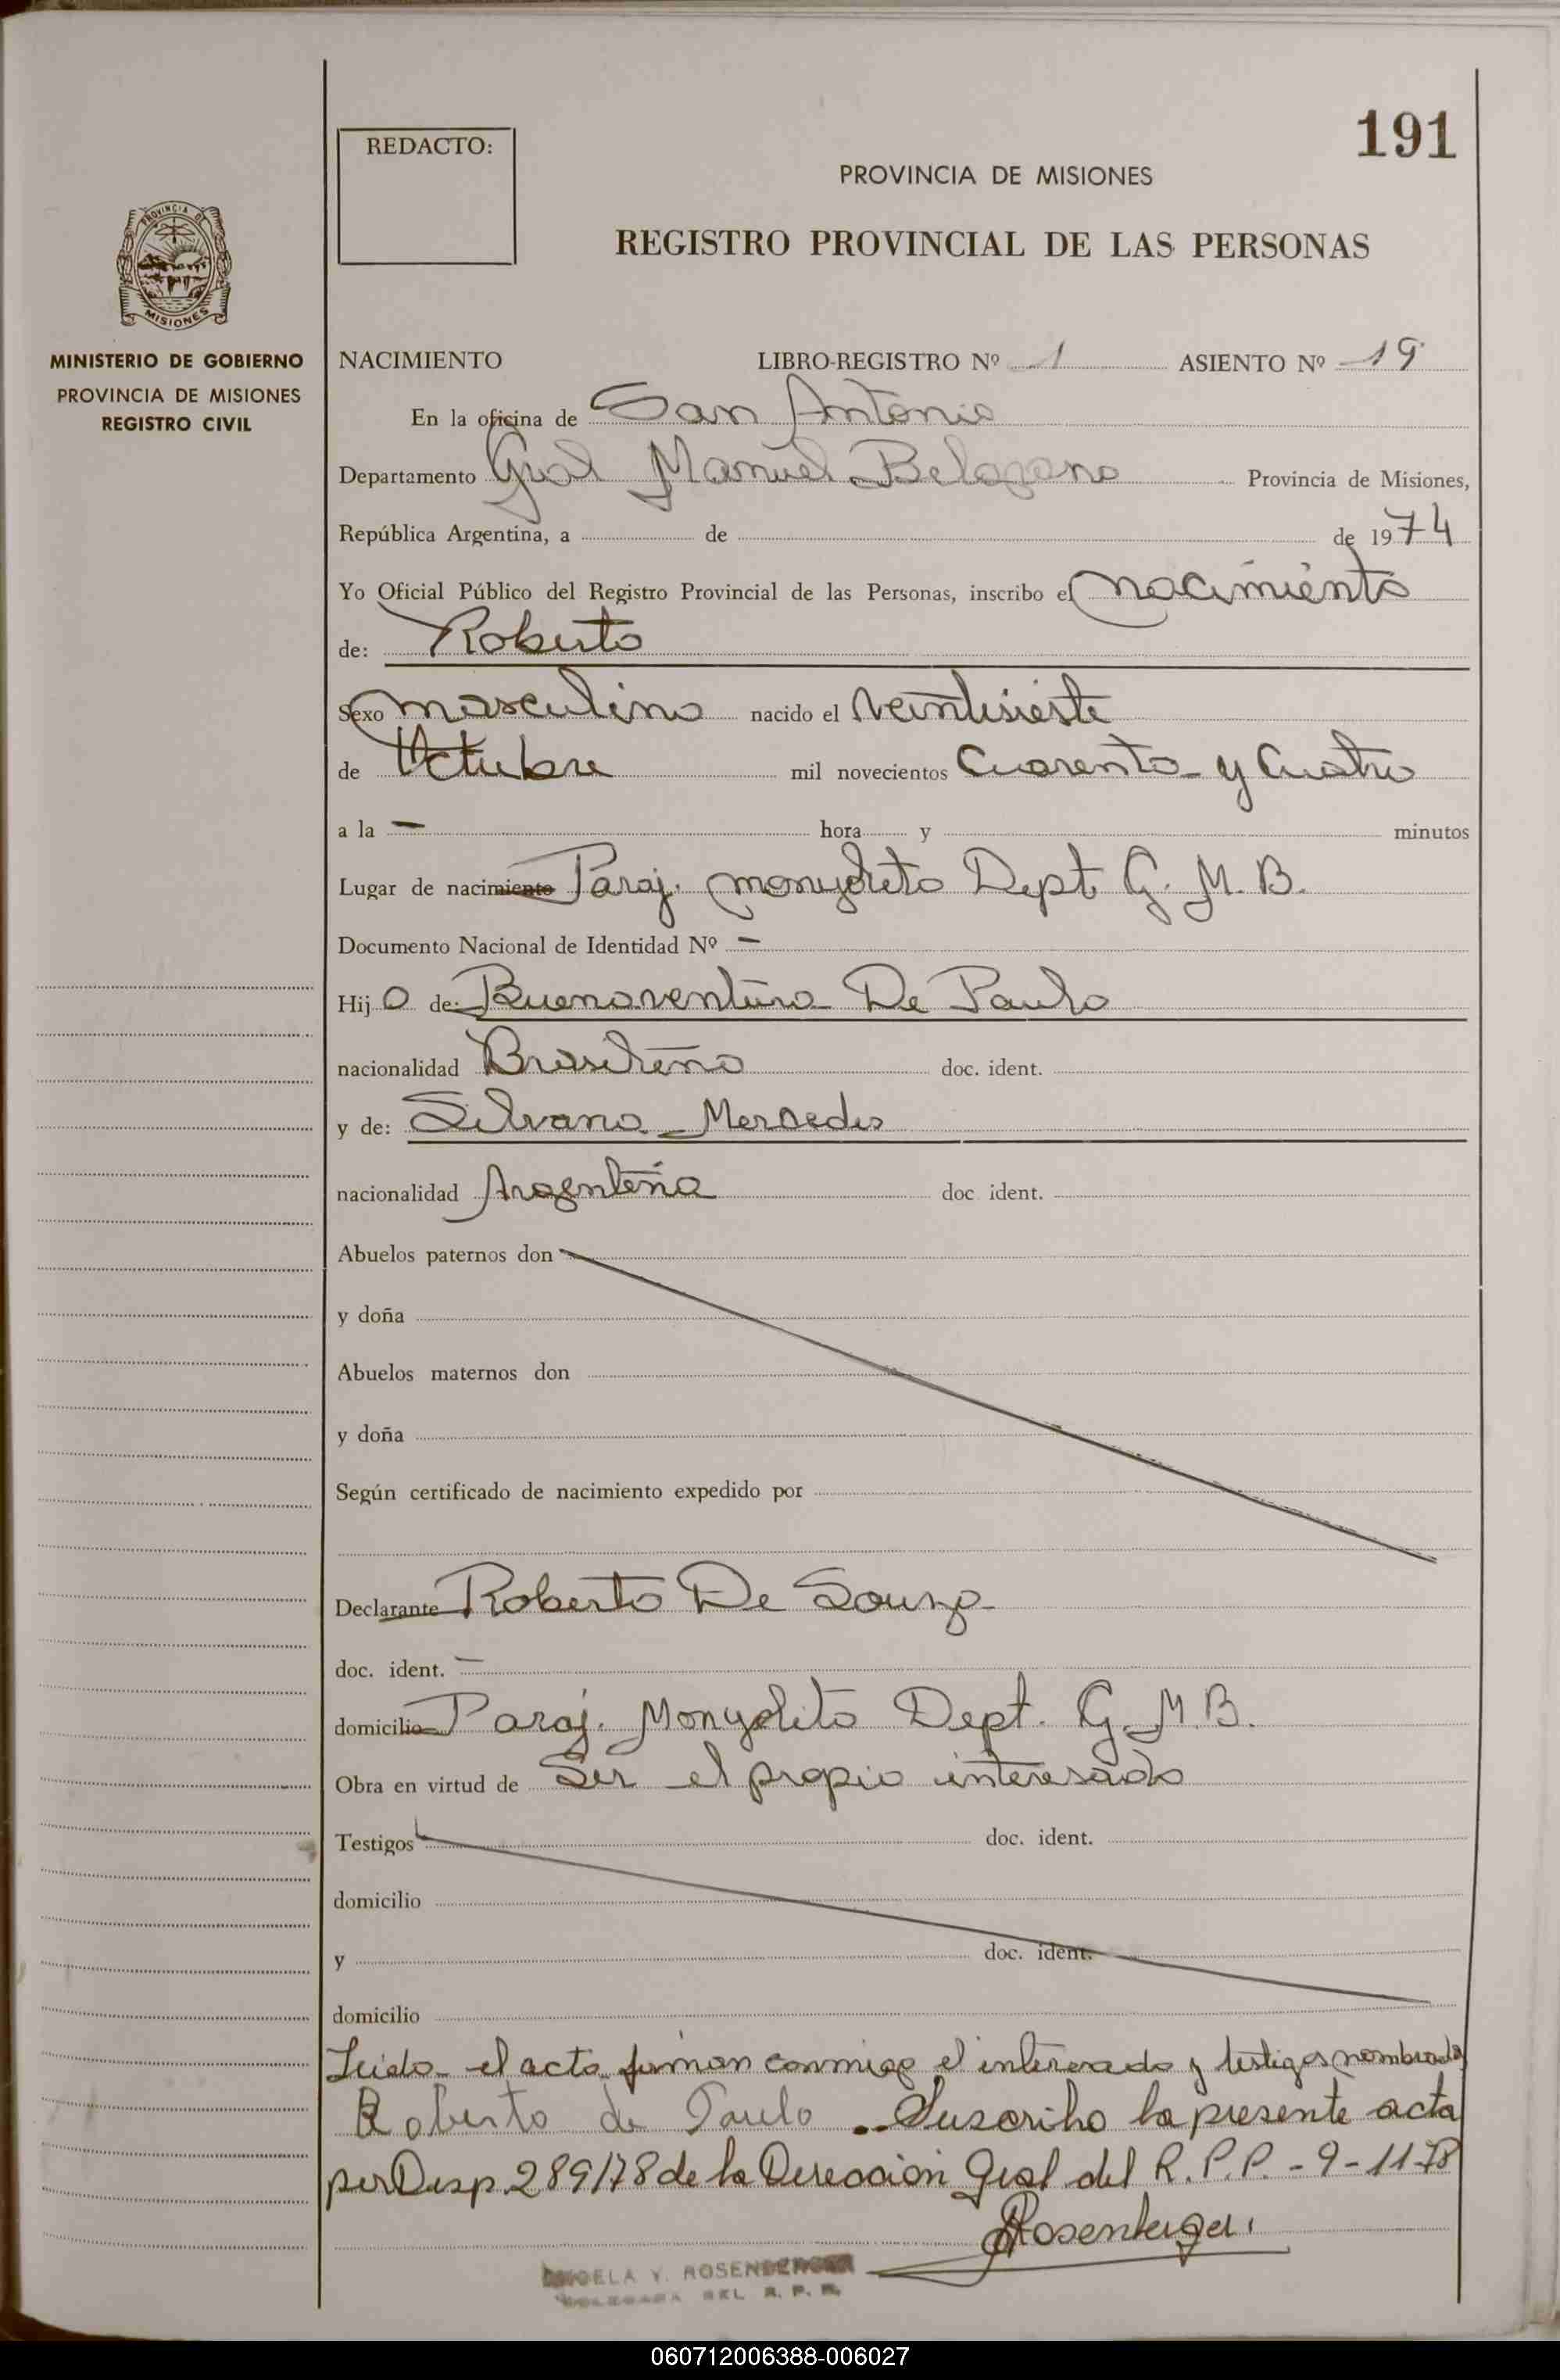 191
REDACTO:
PROVINCIA DE MISIONES
REGISTRO PROVINCIAL DE LAS PERSONAS
PROVINCIA DE
MISIONES
MINISTERIO DE GOBIERNO
PROVINCIA DE MISIONES
REGISTRO CIVIL
NACIMIENTO LIBRO-REGISTRO Nº 1 ASIENTO Nº 19
En la oficina de San Antonio
Departamento Gral Manuel Belgrano Provincia de Misiones,
República Argentina, a de de 1974
Yo Oficial Público del Registro Provincial de las Personas, inscribo el nacimiento
de: Roberto
Sexo masculino nacido el veintisiete
de Octubre mil novecientos cuarenta y cuatro
a la — hora y minutos
Lugar de nacimiento Paraj. Dept. G. M. B.
Documento Nacional de Identidad Nº —
Hijo de: Buenaventura De Paulo
nacionalidad Brasileña doc. ident.
y de: Silvana Mercedes
nacionalidad Argentina doc. ident.
Abuelos paternos don
y doña
Abuelos maternos don
y doña
Según certificado de nacimiento expedido por
Declarante Roberto De Souza
doc. ident. —
domicilio Paraj. Dept. G. M. B.
Obra en virtud de Ser el propio interesado
Testigos doc. ident.
domicilio
y doc. ident.
domicilio
Leida el acta firman conmigo el interesado y testigos nombrados
Roberto de Paulo Suscribo la presente acta
por Disp. 289/78 de la Dirección Gral del R.P.P. - 9-11-78
Rosenberger
Y. ROSENBERGER
DELEGADA DEL R. P. P.
060712006388-006027